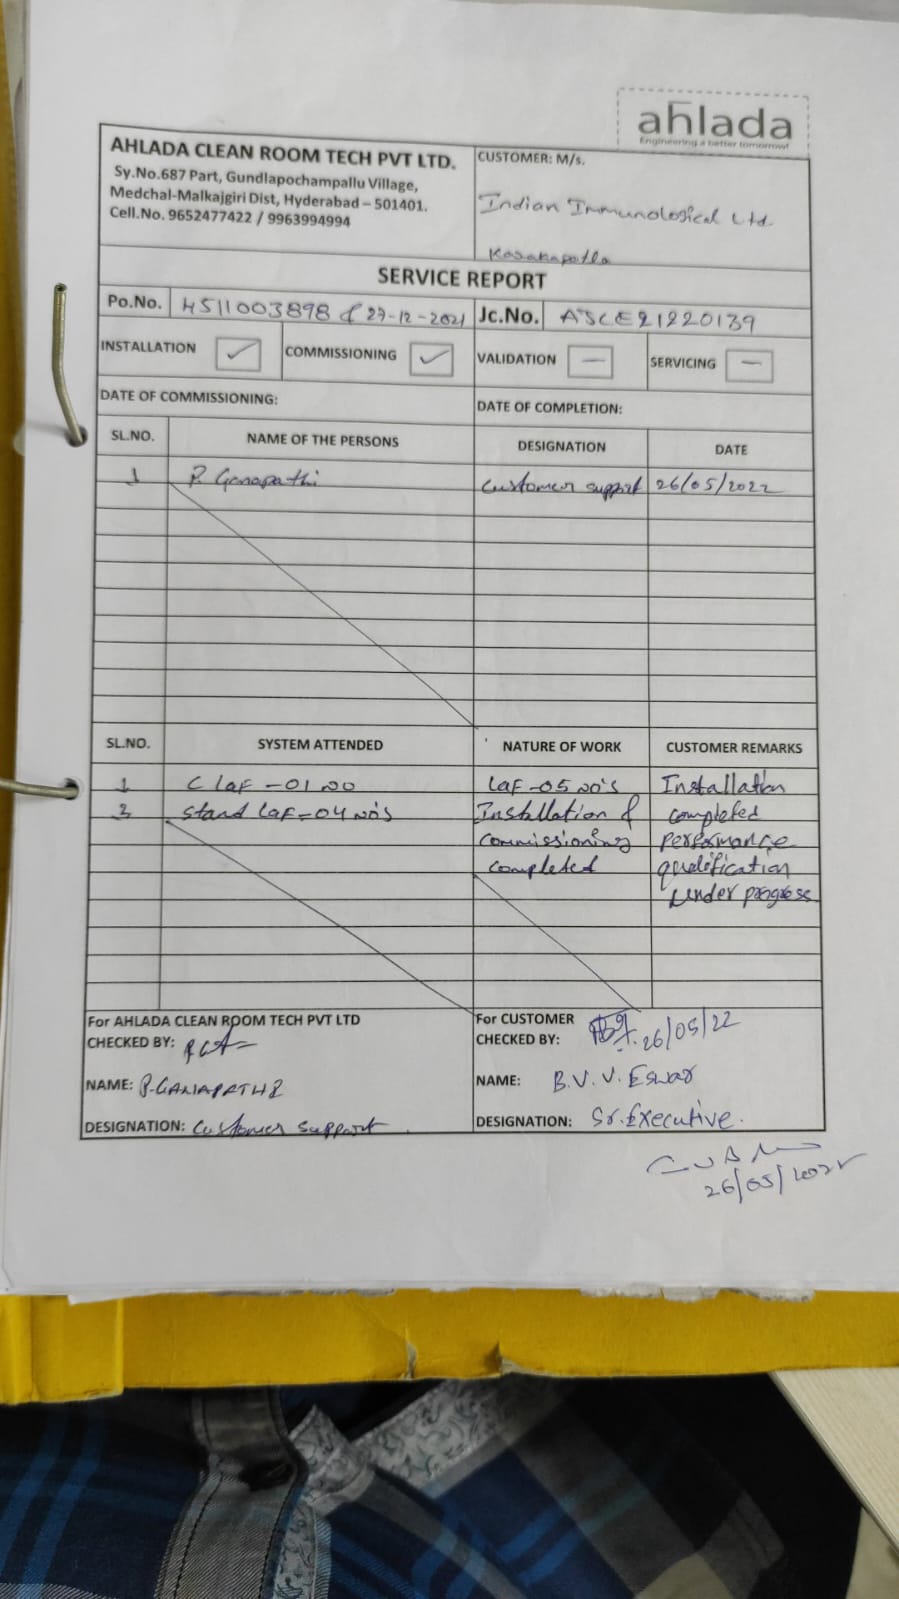 ahlada
Engineering a better tomorrow!
AHLADA CLEAN ROOM TECH PVT LTD.
Sy.No.687 Part, Gundlapochampallu Village,
Medchal-Malkajgiri Dist, Hyderabad – 501401.
Cell.No. 9652477422 / 9963994994
CUSTOMER: M/s.
Indian Immunological Ltd.
SERVICE REPORT
Po.No. 4511003898 & 27-12-2021 Jc.No. ASCE21220139
INSTALLATION ✓ COMMISSIONING ✓ VALIDATION – SERVICING –
DATE OF COMMISSIONING: DATE OF COMPLETION:
SL.NO. NAME OF THE PERSONS DESIGNATION DATE
1 P. Ganapathi Customer support 26/05/2022
SL.NO. SYSTEM ATTENDED NATURE OF WORK CUSTOMER REMARKS
1 C LAF -01 NO LAF -05 NO'S Installation
2 stand LAF-04 NO'S Installation & completed
commissioning performance
completed qualification
under progress
For AHLADA CLEAN ROOM TECH PVT LTD
CHECKED BY:
NAME: P.GANAPATHI
DESIGNATION: Customer support
For CUSTOMER
CHECKED BY: 26/05/22
NAME: B.V.V. Eswar
DESIGNATION: Sr.Executive.
26/05/2022